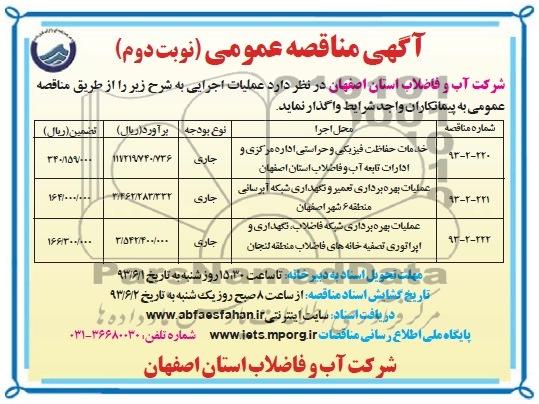 آگهی مناقصه عمومی (نوبت دوم)
شرکت آب و فاضلاب استان اصفهان در نظر دارد عملیات اجرایی به شرح زیر را از طریق مناقصه
عمومی به پیمانکاران واجد شرایط واگذار نماید.
شماره مناقصه محل اجرا نوع بودجه برآورد(ریال) تضمین(ریال)
۹۳-۲-۲۲۰ خدمات حفاظت فیزیکی و حراستی اداره مرکزی و ادارات تابعه آب و فاضلاب استان اصفهان جاری ۱۱۷۲۱۹/۷۴۰/۷۳۶ ۳۴۰/۱۵۹/۰۰۰
۹۳-۲-۲۲۱ عملیات بهره برداری تعمیر و نگهداری شبکه آبرسانی منطقه ۶ شهر اصفهان جاری ۳/۴۶۲/۲۸۳/۳۳۲ ۱۶۴/۰۰۰/۰۰۰
۹۳-۲-۲۲۲ عملیات بهره برداری شبکه فاضلاب، نگهداری و اپراتوری تصفیه خانه های فاضلاب منطقه لنجان جاری ۳/۵۴۲/۴۰۰/۰۰۰ ۱۶۶/۳۰۰/۰۰۰
مهلت تحویل اسناد به دبیرخانه: تا ساعت ۱۵:۳۰ روز شنبه به تاریخ ۹۳/۶/۱
تاریخ گشایش اسناد مناقصه: از ساعت ۸ صبح روز یک شنبه به تاریخ ۹۳/۶/۲
دریافت اسناد: سایت اینترنتی www.abfaesfahan.ir
پایگاه ملی اطلاع رسانی مناقصات www.iets.mporg.ir شماره تلفن: ۳۶۶۸۰۰۳۰-۰۳۱
شرکت آب و فاضلاب استان اصفهان